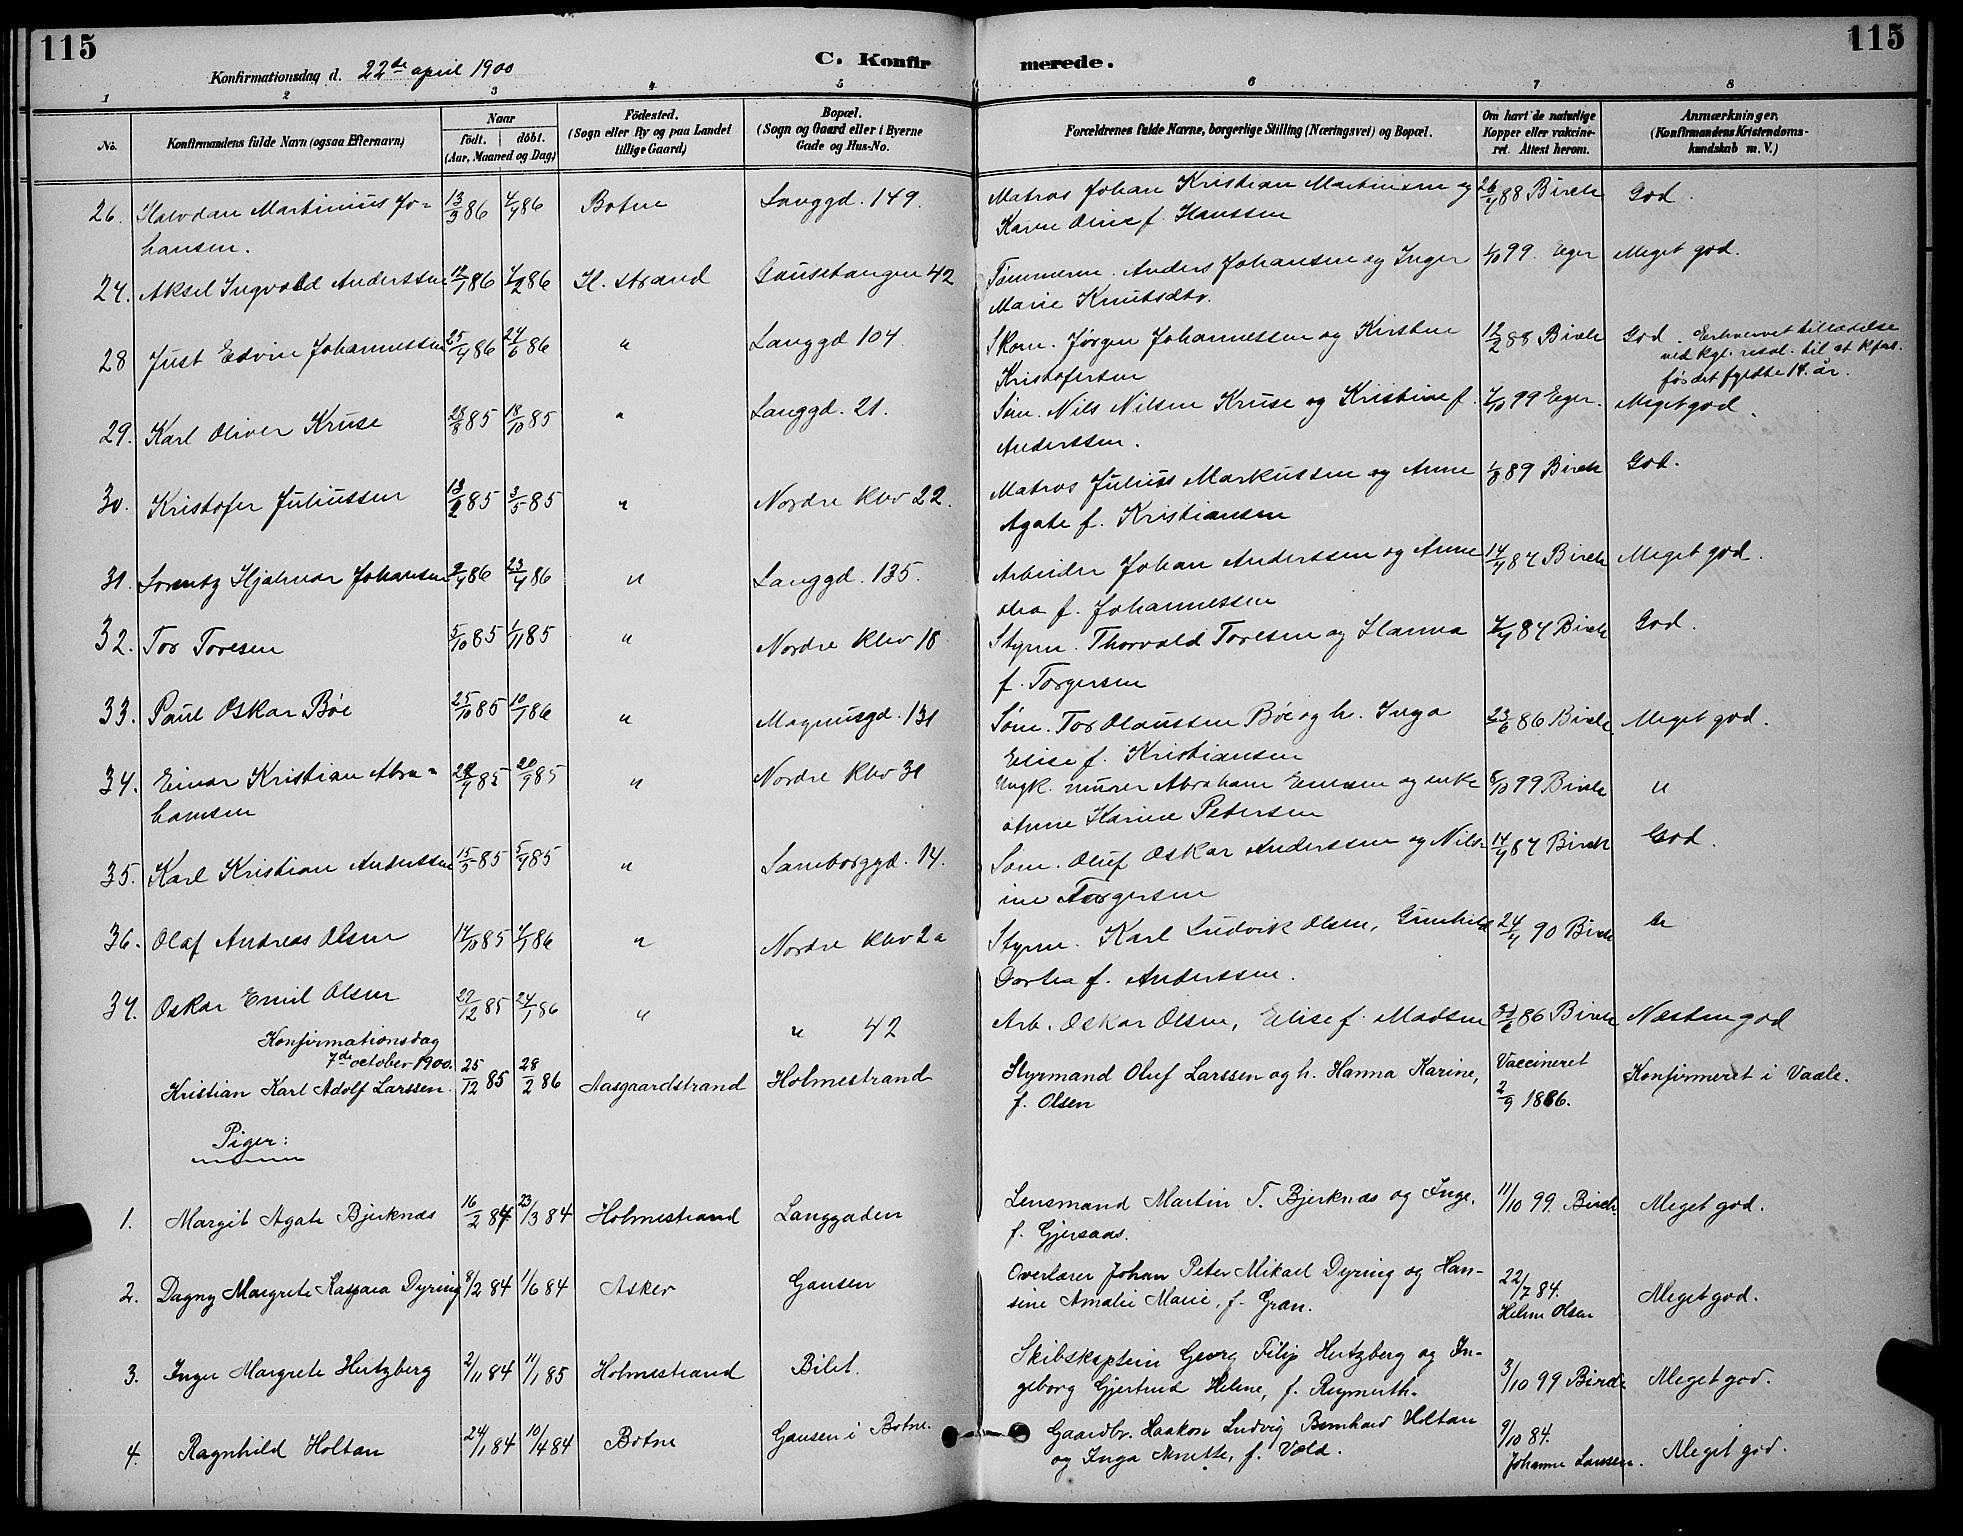 115
115
Konfirmationsdag d. 22de april 1900
C. Konfirmerede.
1 2 3 4 5 6 7 8
No.
Konfirmandens fulde Navn (ogsaa Efternavn)
Naar födt. döbt. (Aar, Maaned og Dag)
Födested. (Sogn eller By og paa Landet tillige Gaard)
Bopæl. (Sogn og Gaard eller i Byerne Gade og Hus-No.
Forældrenes fulde Navne, borgerlige Stilling (Næringsvei) og Bopæl.
Om havt de naturlige Kopper eller vaccineret. Attest herom.
Anmærkninger. (Konfirmandens Kristendomskundskab m. V.)
26. Halvdan Martinius Jo= 13/3 86 4/4 86 Botne Langgd. 149. Matros Johan Kristian Martinsen og 26/4 88 Birch God.
hansen. Karen Oline f. Hanssen
27. Aksel Ingvald Anderssen 12/1 86 7/2 86 H. strand Gausetangen 42 Tømmerm. Anders Johansen og Inger 4/10 99. Eger Meget god.
Marie Knutsdtr.
28 Just Edvin Johannessen 25/4 86 27/6 86 " Langgd 104. Skom. Jørgen Johannessen og Kirstine 12/2 88 Birch God. Erhvervet tilladelse
Kristofersen ved kgl. resol. til at kfres.
før det fyldte 14. år.
29. Karl Oliver Kruse 28/8 85 18/10 85 " Langgd. 21. Søm. Nils Nilsen Kruse og Kristine f. 7/10 99 Eger. Meget god.
Anderssen.
30. Kristofer Juliussen 13/2 85 3/5 85 " Nordre Khv 22. Matros Julius Markussen og Anne 1/8 89 Birch God.
Agate f. Kristiansen
31. Lorentz Hjalmar Johansen 2/4 86 23/4 86 " Langgd. 135. Arbeider Johan Anderssen og Anne 14/4 87 Birch Meget god.
Olea f. Johannessen
32. Tor Toresen 5/10 85 1/11 85 " Nordre Khv 18 Styrm. Thorvald Toresen og Hanna 7/4 87 Birch God.
f. Torgersen
33. Paul Oskar Böe 25/10 85 10/1 86 " Magnusgd. 131 Søm. Tor Olaussen Böe og h. Inga 23/6 86 Birch Meget god.
Elise f. Kristiansen
34. Einar Kristian Abra= 28/7 85 20/9 85 " Nordre Khv 31 Ungk. murer Abraham Emsen og enke 5/10 99 Birch "
hamsen Anne Karine Petersen
35. Karl Kristian Anderssen 15/5 85 5/7 85 " Samborggd. 14. Søm. Oluf Oskar Anderssen og Nils- 14/4 87 Birch God.
ine Torgersen
36. Olaf Andreas Olsen 14/10 85 4/1 86 " Nordre Khv 2a Styrm. Karl Ludvik Olsen, Gunhild 24/4 90 Birch "
Dortea f. Anderssen.
37. Oskar Emil Olsen 27/12 85 24/1 86 " " 42 Arb. Oskar Olsen, Elise f. Madsen 23/6 86 Birch Næsten god
Konfirmationsdag
7de october 1900.
Kristian Karl Adolf Larssen. 25/12 85 28/2 86 Aasgaardstrand Holmestrand Styrmand Oluf Larssen og h. Hanna Karine, Vaccineret Konfirmeret i Vaale.
f. Olsen 2/9 1886.
Piger:
1. Margit Agate Bjerknæs 16/2 84 23/3 84 Holmestrand Langgaden Lensmand Martin T. Bjerknæs og Inge, 11/10 99. Birch. Meget god.
f. Gjersaas.
2. Dagny Margrete Kaspara Dyring 8/2 84 1/6 84 Asker Gausen Overlærer Johan Peter Mikael Dyring og Han- 22/7 84. Meget god.
sine Amalie Marie, f. Gran. Helene Olsen
3. Inger Margrete Hertzberg 2/11 84 11/1 85 Holmestrand Bilet. Skibskaptein Georg Filip Hertzberg og In- 3/10 99 Birch Meget god.
geborg Gjertrud Helene, f. Reymerth.
4. Ragnhild Holtan 24/1 84 10/4 84 Botne Gausen i Botne. Gaardbr. Haakon Ludvig Bernhard Holtan 9/10 84. Meget god.
og Inga Anette, f. Vold. Johanne Larssen.